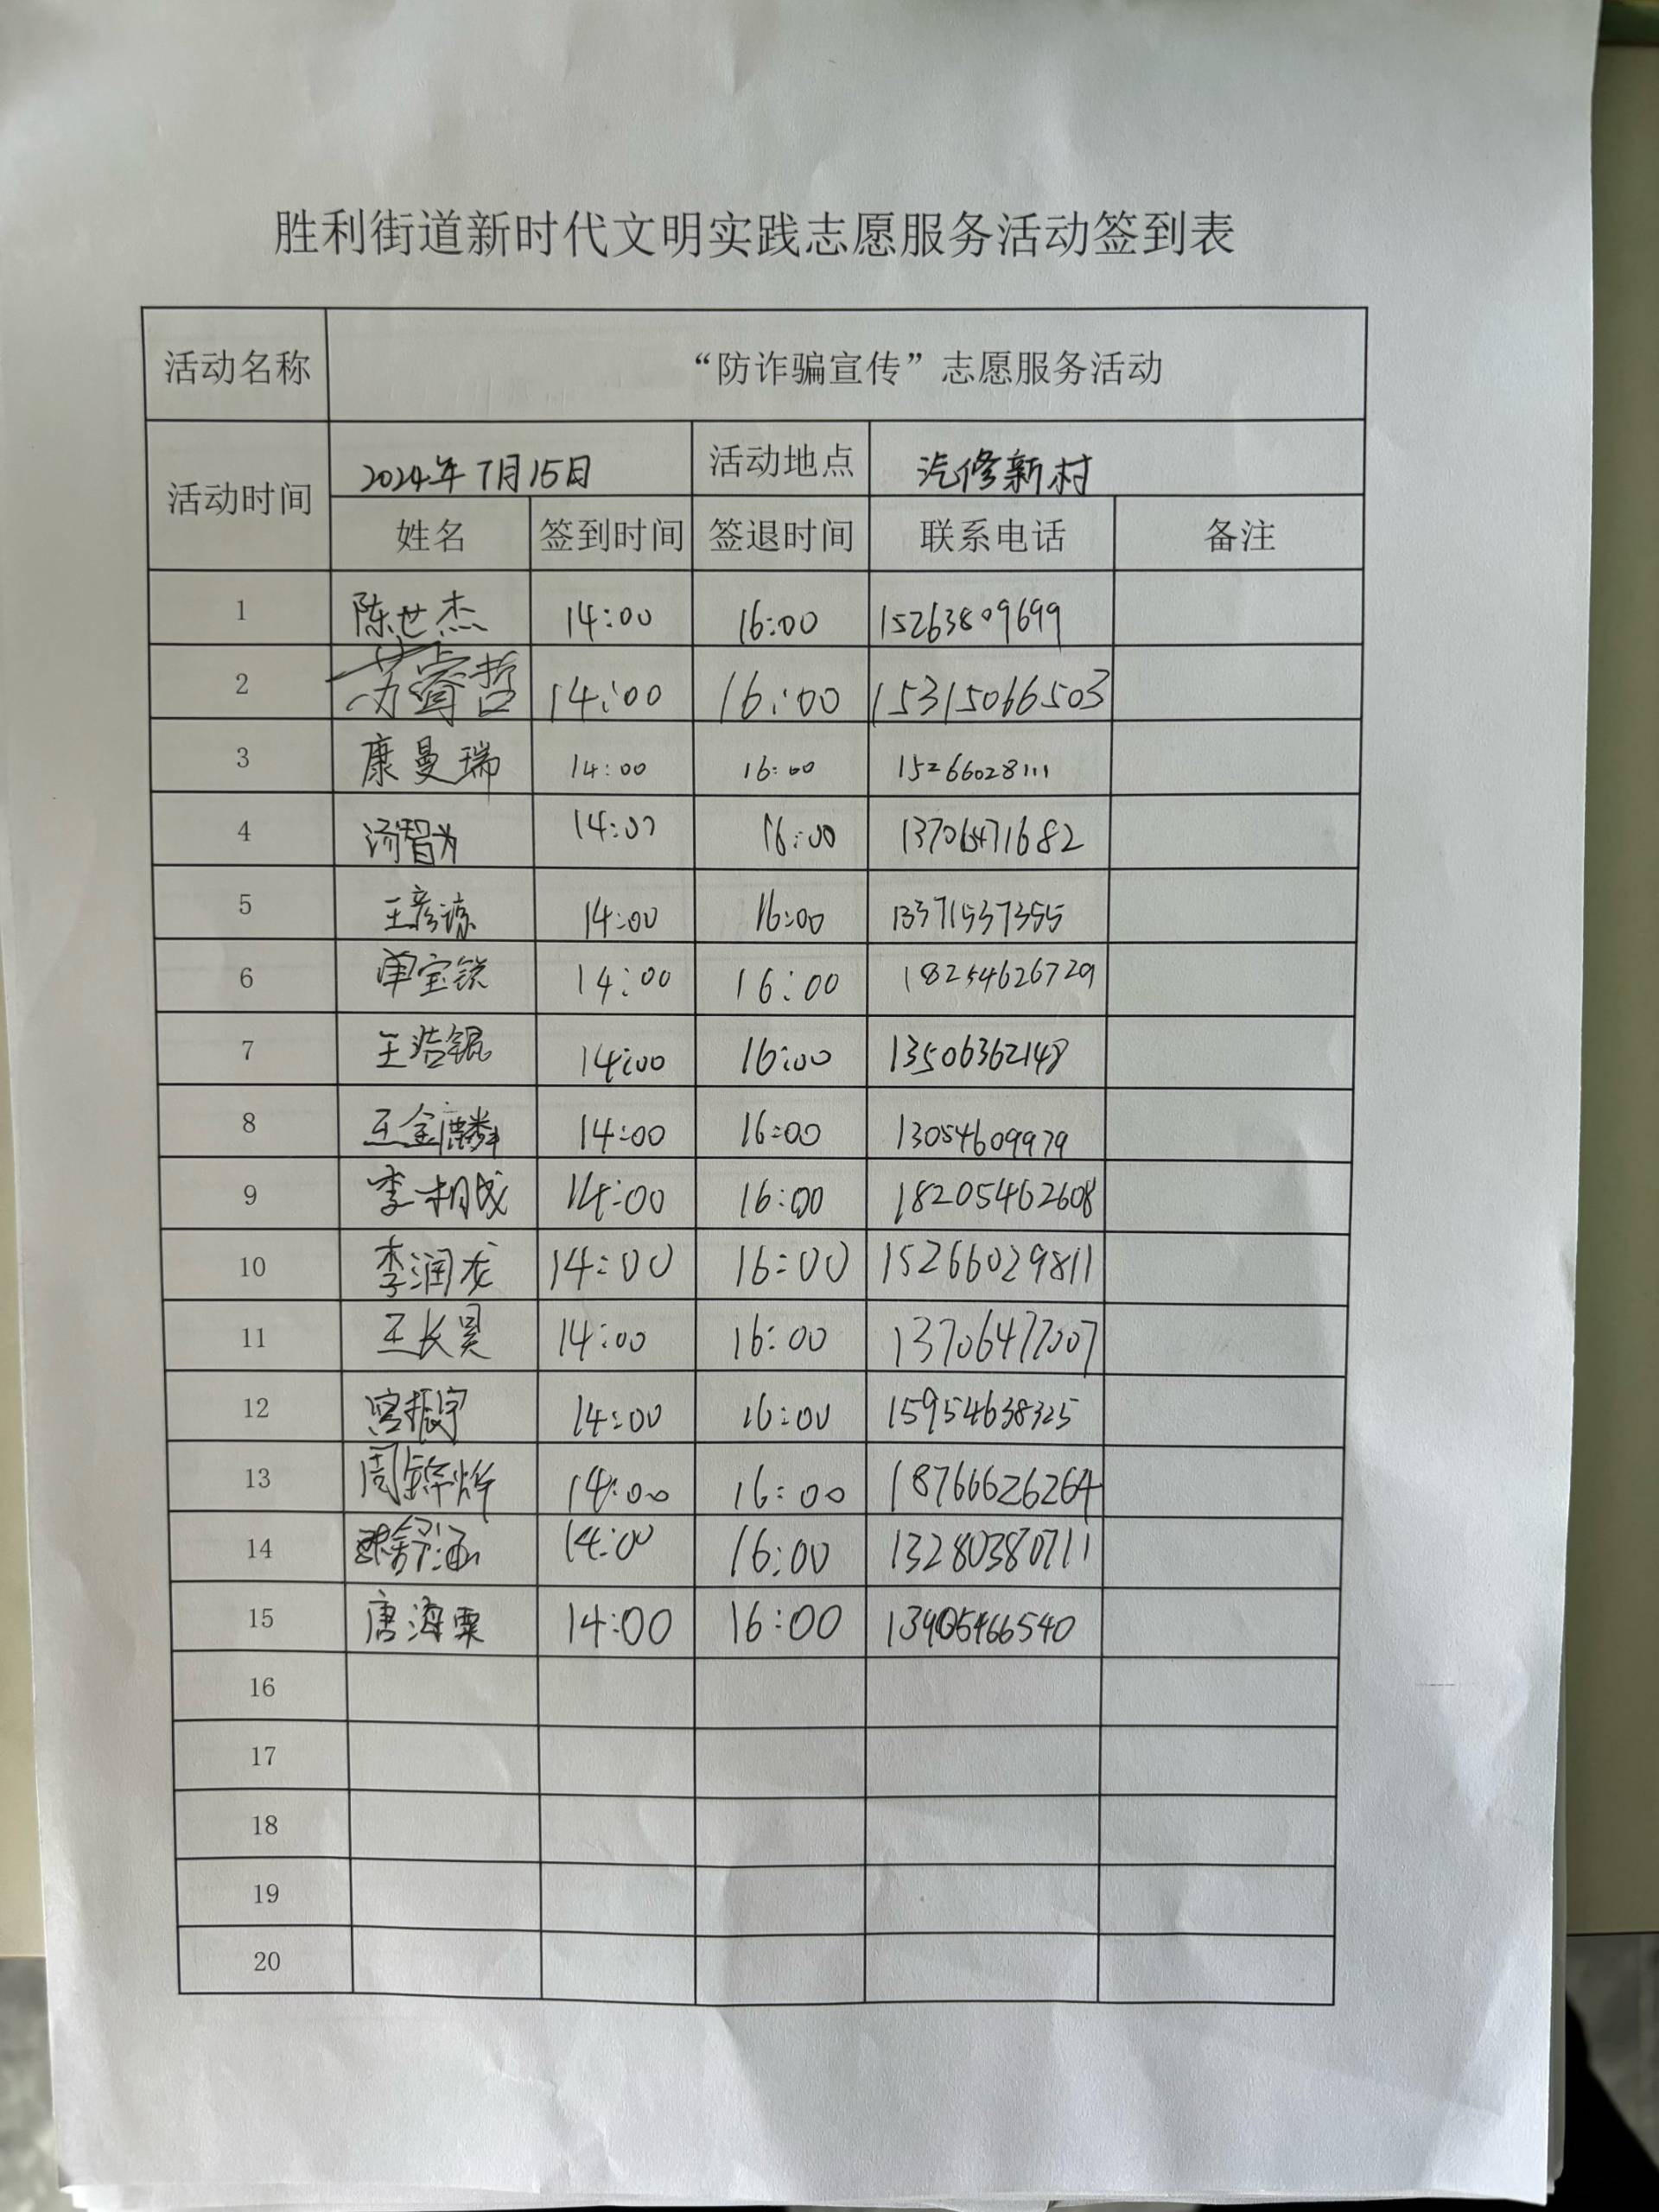 胜利街道新时代文明实践志愿服务活动签到表
活动名称 “防诈骗宣传”志愿服务活动
活动时间 2024年7月15日 活动地点 汽修新村
姓名 签到时间 签退时间 联系电话 备注
1 陈世杰 14:00 16:00 15263809699
2 苏睿哲 14:00 16:00 15315066503
3 康曼瑞 14:00 16:00 15266028111
4 汤智为 14:00 16:00 13706471682
5 王彦谅 14:00 16:00 13371537355
6 单宝锐 14:00 16:00 18254626729
7 王浩锟 14:00 16:00 13506362148
8 王金麟 14:00 16:00 13054609979
9 李相成 14:00 16:00 18205462608
10 李润龙 14:00 16:00 15266029811
11 王长昊 14:00 16:00 13706477007
12 宫振宇 14:00 16:00 15954638325
13 14:00 16:00 18766626264
14 14:00 16:00 13280380711
15 唐海粟 14:00 16:00 13405466540
16
17
18
19
20